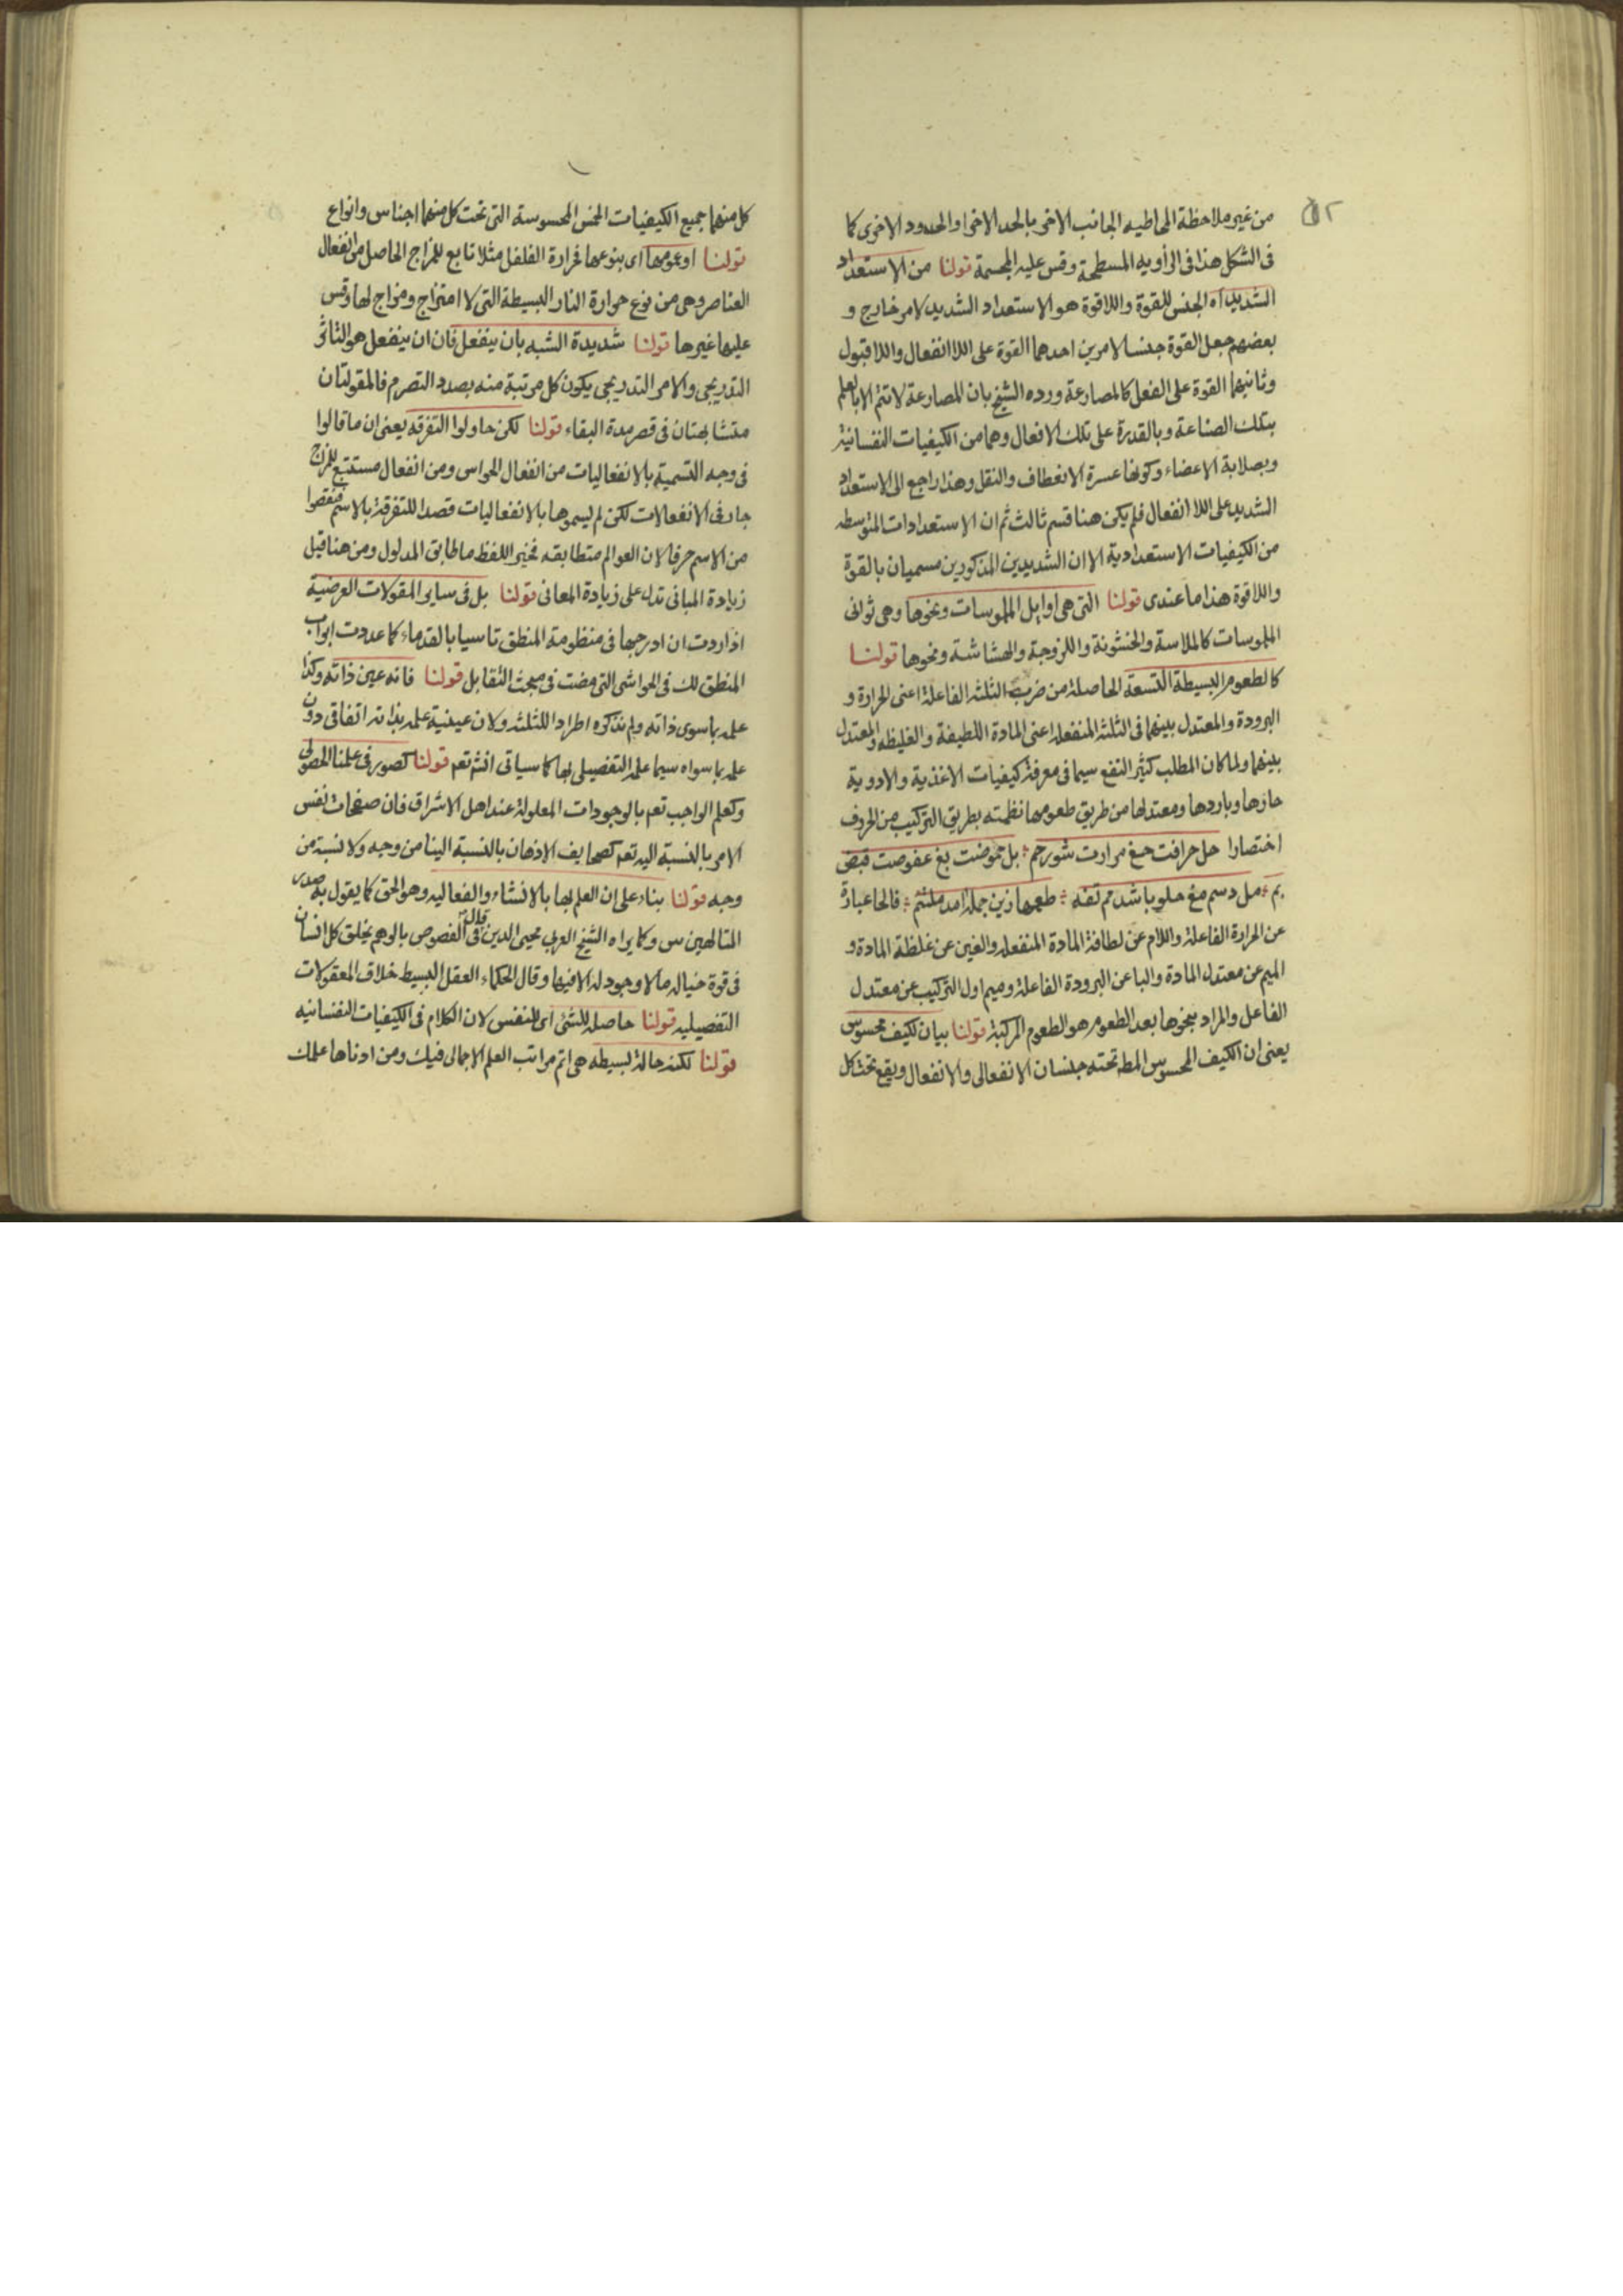 من غير ملاحظة المحاطيه الجانب الاخر بالحد الاخر او الحدود الاخرى كما
فى الشكل هذا فى الزاويه المسطحة وقس عليه المجسمة قولنا من الاستعداد
الشديد اه الجنس للقوة واللاقوة هو الاستعداد الشديد لامر خارج و
بعضهم جعل القوة جنسا لامرين احدهما القوة على اللاانفعال واللاقبول
وثانيهما القوة على الفعل كالمصارعة ورده الشيخ بان المصارعة لا تتم الا بالعلم
بتلك الصناعة وبالقدرة على تلك الافعال وهما من الكيفيات النفسانية
وبصلابة الاعضاء وكونها عسرة الانعطاف والنقل وهذا راجع الى الاستعداد
الشديد على اللاانفعال فلم يكن هنا قسم ثالث ثم ان الاستعدادات المتوسطه
من الكيفيات الاستعدادية الا ان الشديدين المذكورين مسميان بالقوة
واللاقوة هذا ما عندى قولنا التى هى اوايل الملموسات ونحوها وهى ثوانى
الملموسات كالملاسة والخشونة واللزوجة والهشاشة ونحوها قولنا
كالطعوم البسيطة التسعة الحاصلة من ضرب الثلثه الفاعلة اعنى الحرارة و
البرودة والمعتدل بينهما فى الثلثه المنفعله اعنى المادة اللطيفة والغليظه والمعتدل
بينهما ولما كان المطلب كثير النفع سيما فى معرفة كيفيات الاغذية والادوية
حارها وباردها ومعتدلها من طريق طعومها نظمته بطريق التركيب من الحروف
اختصارا حل حرافت حغ مرارت شور حم ؛ بل حموضت بغ عفوصت قبض
بم ؛ مل دسم مغ حلو باشد مم تفه ؛ طعمها زين جمله امد ملتئم ؛ فالحا عبارة
عن الحرارة الفاعلة واللام عن لطافة المادة المنفعله والغين عن غلظة المادة و
الميم عن معتدل المادة والبا عن البرودة الفاعلة وميم اول التركيب عن معتدل
الفاعل والمراد بنحوها بعد الطعوم هو الطعوم المركبة قولنا بيان لكيف محسوس
يعنى ان الكيف المحسوس المط تحته جنسان الانفعالى والانفعال ويقع تحت كل
كل منهما جميع الكيفيات الخمس المحسوسة التى تحت كل منهما اجناس وانواع
قولنا او عمومها اى بنوعها فحرارة الفلفل مثلا تابع للمزاج الحاصل من انفعال
العناصر وهى من نوع حرارة النار البسيطة التى لا امتزاج ومزاج لها وقس
عليها غيرها قولنا شديدة الشبه بان ينفعل فان ان ينفعل هو التاثر
التدريجى والامر التدريجى يكون كل مرتبة منه بصدد التصرم فالمقولتان
متشابهتان فى قصر مدة البقاء قولنا لكن حاولوا التفرقه يعنى ان ما قالوا
فى وجه التسمية بالانفعاليات من انفعال الحواس ومن انفعال مستتبع للمزاج
جار فى الانفعالات لكن لم يسموها بالانفعاليات قصدا للتفرقة بالاسم فنقصوا
من الاسم حرفا لان العوالم متطابقه فخير اللفظ ما طابق المدلول ومن هنا قيل
زيادة المبانى تدل على زيادة المعانى قولنا بل فى ساير المقولات العرضية
اذا اردت ان ادرجها فى منظومة المنطق تاسيا بالقدماء كما عددت ابواب
المنطق لك فى الحواشى التى مضت فى مبحث التقابل قولنا فانه عين ذاته وكذا
علمه بما سوى ذاته ولم نذكره اطرادا للثلثه ولان عينية علمه بذاته اتفاقى دون
علمه بما سواه سيما علمه التفصيلى بها كما سياتى انشه تعه قولنا كصور فى علمنا الحصولى
وكعلم الواجب تعه بالوجودات المعلولة عند اهل الاشراق فان صفحات نفس
الامر بالنسبة اليه تعه كصحايف الاذهان بالنسبة الينا من وجه ولا نسبة من
وجه قولنا بناء على ان العلم بها بالانشاء والفعاليه وهو الحق كما يقول به صدر
المتالهين س وكما يراه الشيخ العربى محيى الدين قال فى الفصوص بالوهم يخلق كل انسان
فى قوة خياله ما لا وجود له الا فيها وقال الحكماء العقل البسيط خلاق المعقولات
التفصيليه قولنا حاصله للشئ اى للنفس لان الكلام فى الكيفيات النفسانيه
قولنا لكنه حالة بسيطه هى اتم مراتب العلم الاجمالى فيك ومن ادناها علمك